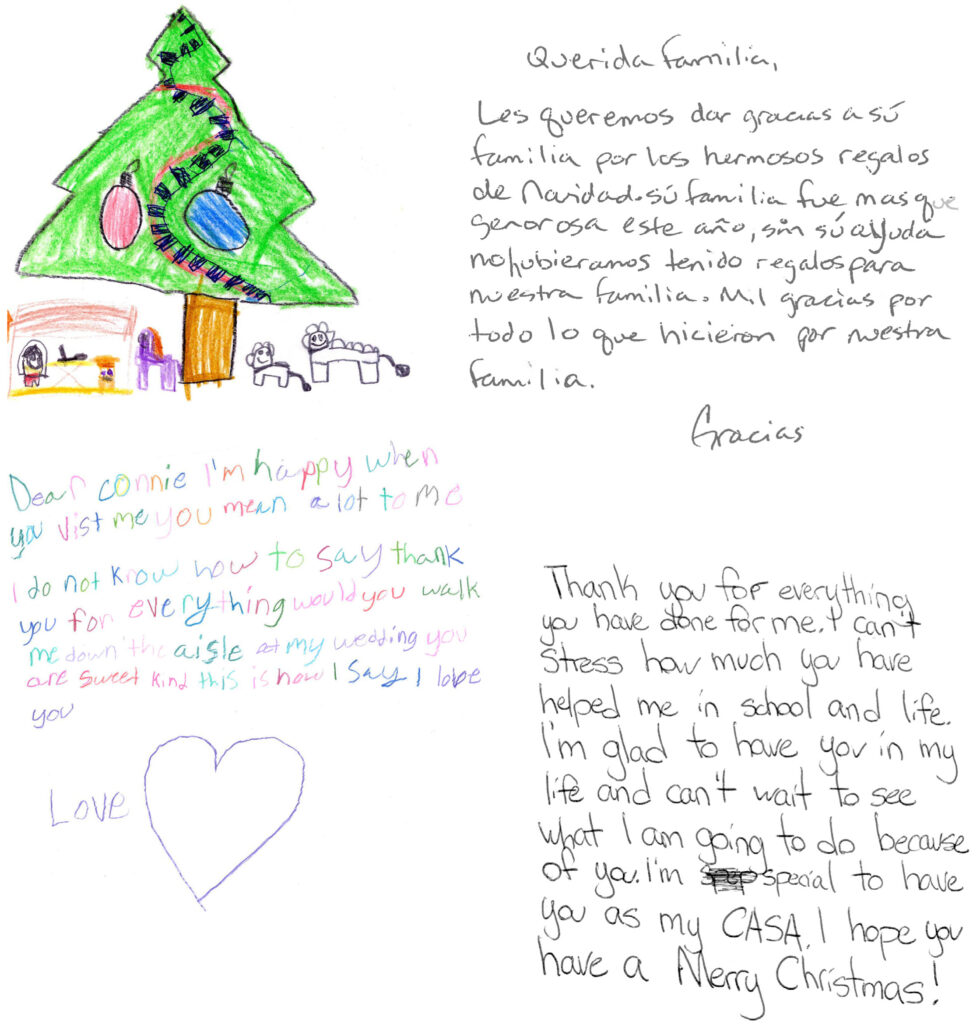 Querida familia,
Les queremos dar gracias a sú
familia por los hermosos regalos
de Navidad. sú familia fue mas que
generosa este año, sin sú ayuda
no hubieramos tenido regalos para
nuestra familia. Mil gracias por
todo lo que hicieron por nuestra
familia.
Gracias
Dear connie I'm happy when
you vist me you mean a lot to me
I do not know how to say thank
you for everything would you walk
me down the aisle at my wedding you
are sweet kind this is how I say I love
you
Love
Thank you for everything
you have done for me. I can't
stress how much you have
helped me in school and life.
I'm glad to have you in my
life and can't wait to see
what I am going to do because
of you. I'm special to have
you as my CASA. I hope you
have a Merry Christmas!